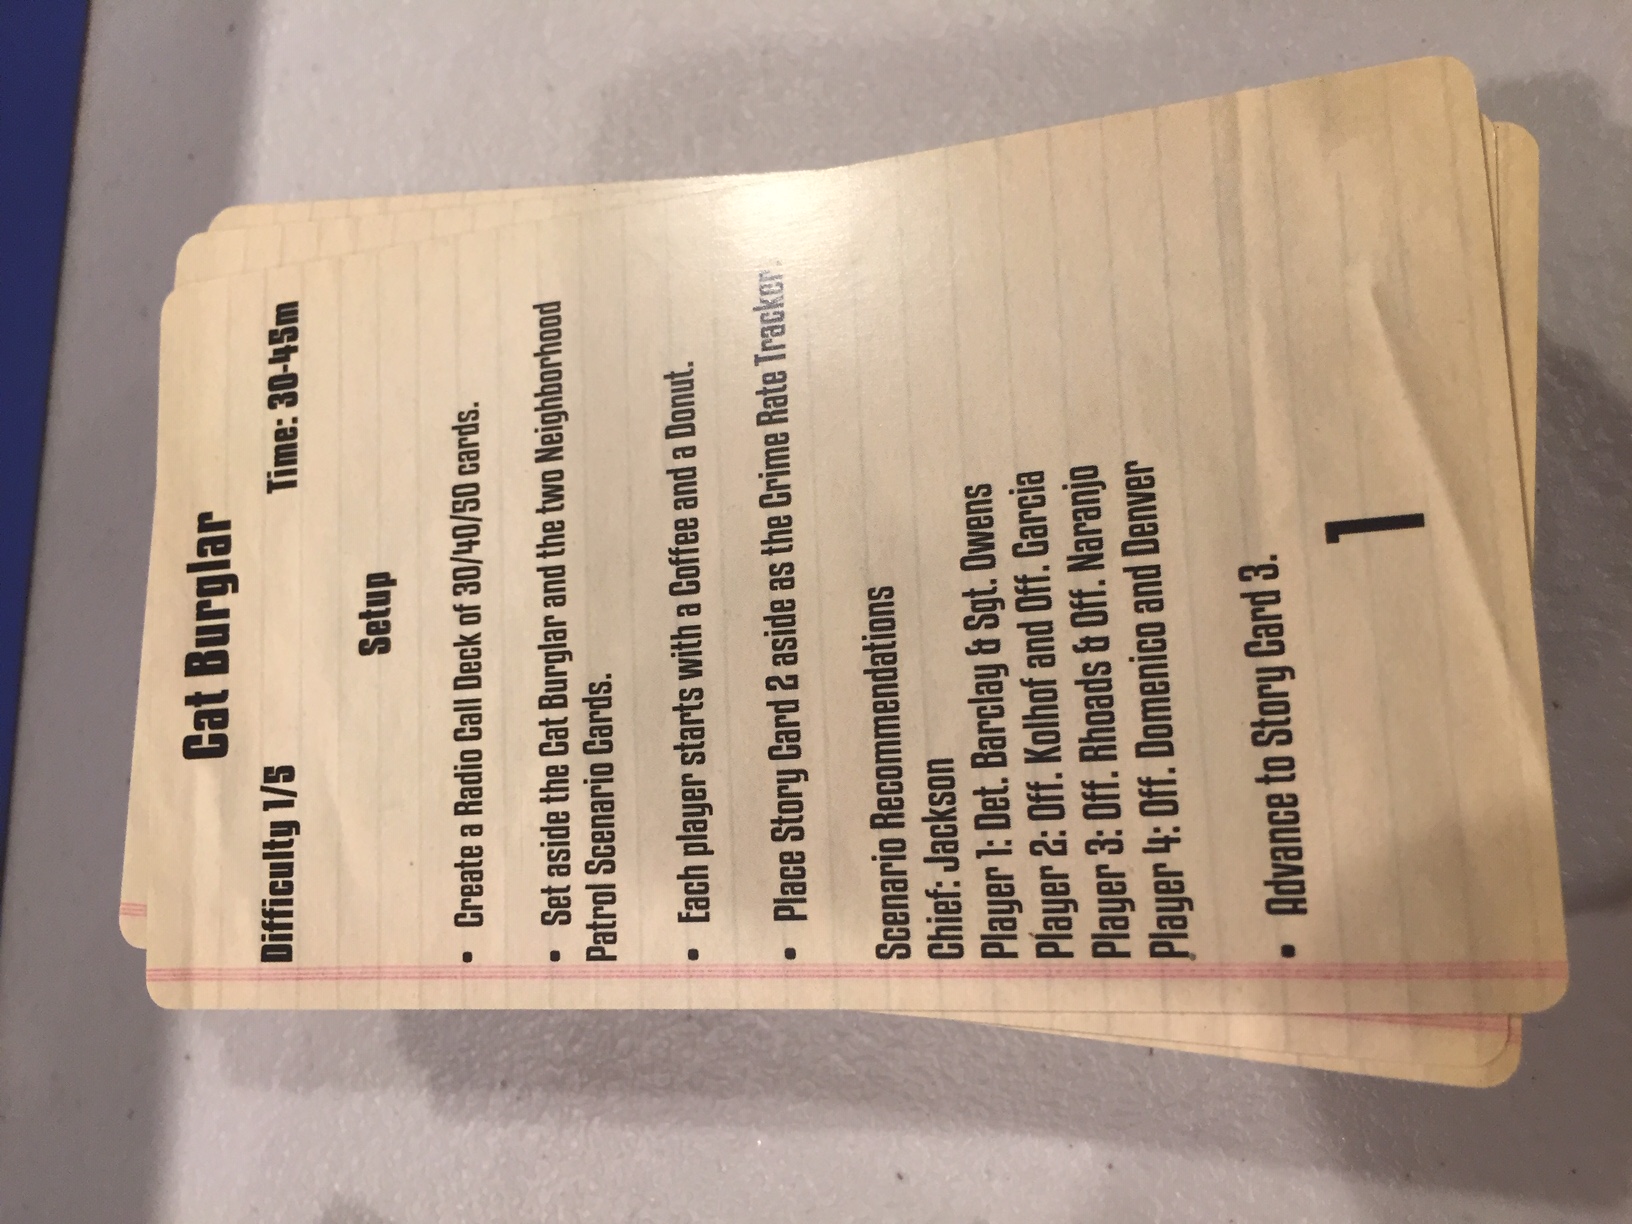 Cat Burglar
Difficulty 1/5 Time: 30-45m
Setup
• Create a Radio Call Deck of 30/40/50 cards.
• Set aside the Cat Burglar and the two Neighborhood
Patrol Scenario Cards.
• Each player starts with a Coffee and a Donut.
• Place Story Card 2 aside as the Crime Rate Tracker.
Scenario Recommendations
Chief: Jackson
Player 1: Det. Barclay & Sgt. Owens
Player 2: Off. Kolhof and Off. Garcia
Player 3: Off. Rhoads & Off. Naranjo
Player 4: Off. Domenico and Denver
• Advance to Story Card 3.
1